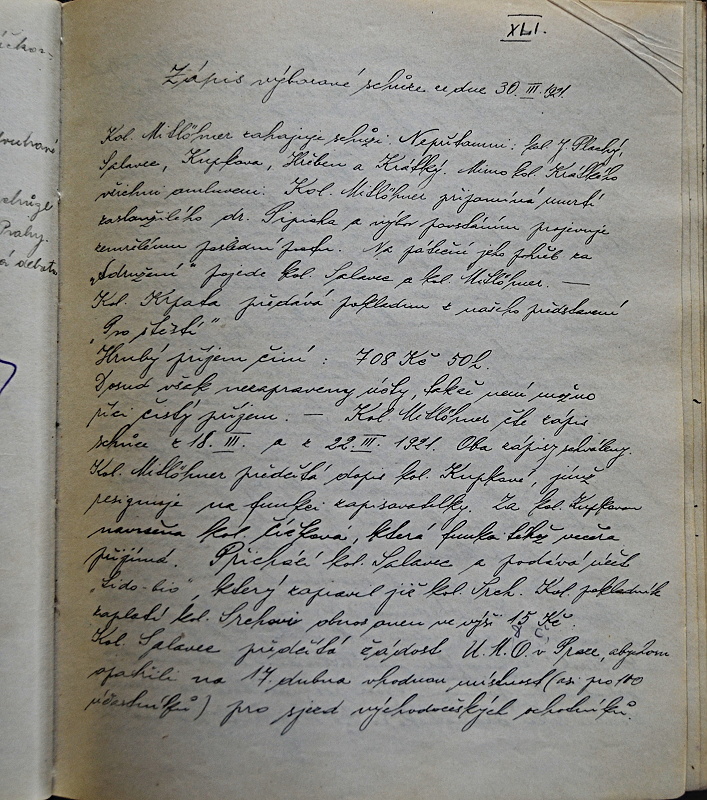 XLI.
Zápis výborové schůze ze dne 30. III. 1921.
Kol. Mitlöhner zahajuje schůzi. Nepřítomni: kol. J. Plachý,
Salavec, Kupkova, Hřiben a Krátký. Mimo kol. Krátkého
všichni omluveni. Kol. Mitlöhner připomíná úmrtí
zasloužilého dr. Pipicha a výbor povstáním projevuje
zemřelému poslední poctu. Na páteční jeho pohřeb za
„Sdružení" pojede kol. Salavec a kol. Mitlöhner. —
Kol. Krpata předává pokladnu z našeho představení
„Pro štěstí"
Hrubý příjem činí : 708 Kč 50 h.
Dosud však nezapraveny účty, takže není možno
říci čistý příjem. — Kol. Mitlöhner čte zápis
schůze z 18. III. a z 22. III. 1921. Oba zápisy schváleny.
Kol. Mitlöhner předčítá dopis kol. Kupkové, jímž
resignuje na funkci zapisovatelky. Za kol. Kupkovou
navržena kol. Číčkova, která funkci večera
přijímá. Přichází kol. Salavec a podává účet
„Lido-bio", který zapravil již kol. Srch. Kol. pokladník
zaplatí kol. Srchovi obnos onen ve výši 15 Kč.
Kol. Salavec předčítá žádost Ú.M.O.Č. v Praze, abychom
opatřili na 17. dubna vhodnou místnost (asi pro 100
účastníků) pro sjezd východočeských ochotníků.